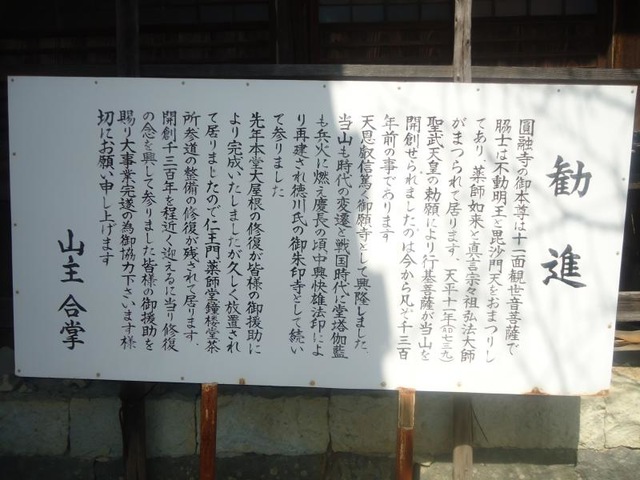 勧進
圓融寺の御本尊は十一面観世音菩薩で
脇士は不動明王と毘沙門天とおまつりし
てあり、薬師如来と真言宗々祖弘法大師
がまつられて居ります。天平十一年(七三九)
聖武天皇の勅願により行基菩薩が当山を
開創せられましたのは今から凡そ千三百
年前の事であります
天恩敬信篤く御願寺として興隆しました
当山も時代の変遷と戦国時代に堂塔伽藍
も兵火に燃え慶長の頃中興快雄法印によ
り再建され徳川氏の御朱印寺として続い
て参りました
先年本堂大屋根の修復が皆様の御援助に
より完成いたしましたが久しく放置され
て居りましたので仁王門、薬師堂鐘楼堂茶
所参道の整備の修復が残されて居ります。
開創千三百年を程近く迎えるに当り修復
の念を興して参りました皆様の御援助を
賜り大事業完遂の為御協力下さいます様
切にお願い申し上げます
山主 合掌